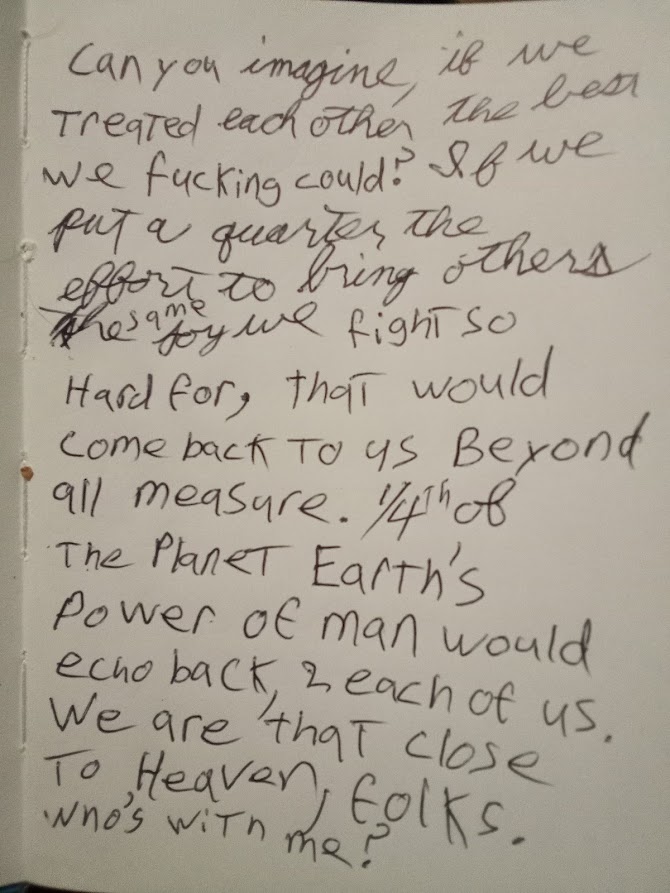 Can you imagine, if we
treated each other the best
we fucking could? If we
put a quarter the
effort to bring others
the same joy we fight so
Hard for, that would
come back to us Beyond
all measure. 1/4th of
The Planet Earth's
Power of man would
echo back, 2 each of us.
We are that close
To Heaven, folks.
Who's with me?